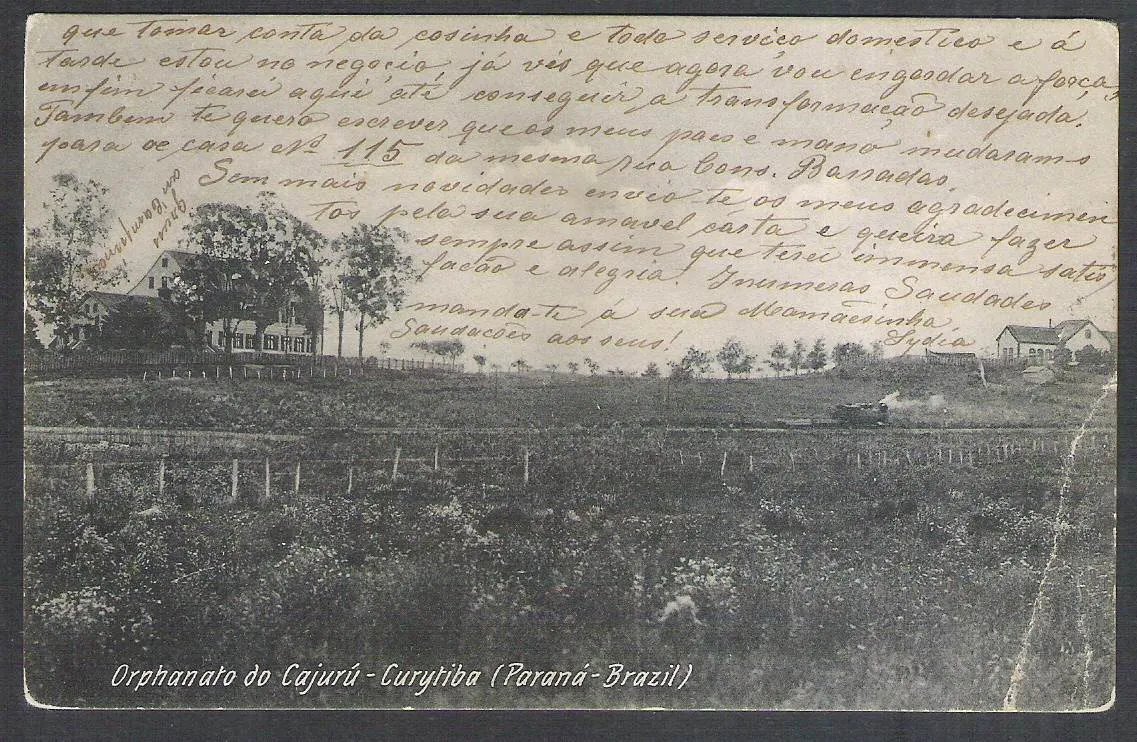 que tomar conta da cosinha e todo serviço domestico e á
tarde estou no negocio, já vês que agora vou engordar a força,
emfim ficarei aqui até conseguir a transformação desejada.
Tambem te quero escrever que os meus paes e mano mudaram-s
para oe casa Nº 115 da mesma rua Cons. Barradas.
Sem mais novidades envio-te os meus agradecimen
tos pela sua amavel carta e queira fazer
sempre assim que terei immensa satis
facão e alegria. Inumeras Saudades
manda-te á sua Mamãesinha,
Lydia
Saudações aos seus!
Orphanato do Cajurú - Curytiba (Paraná - Brazil)